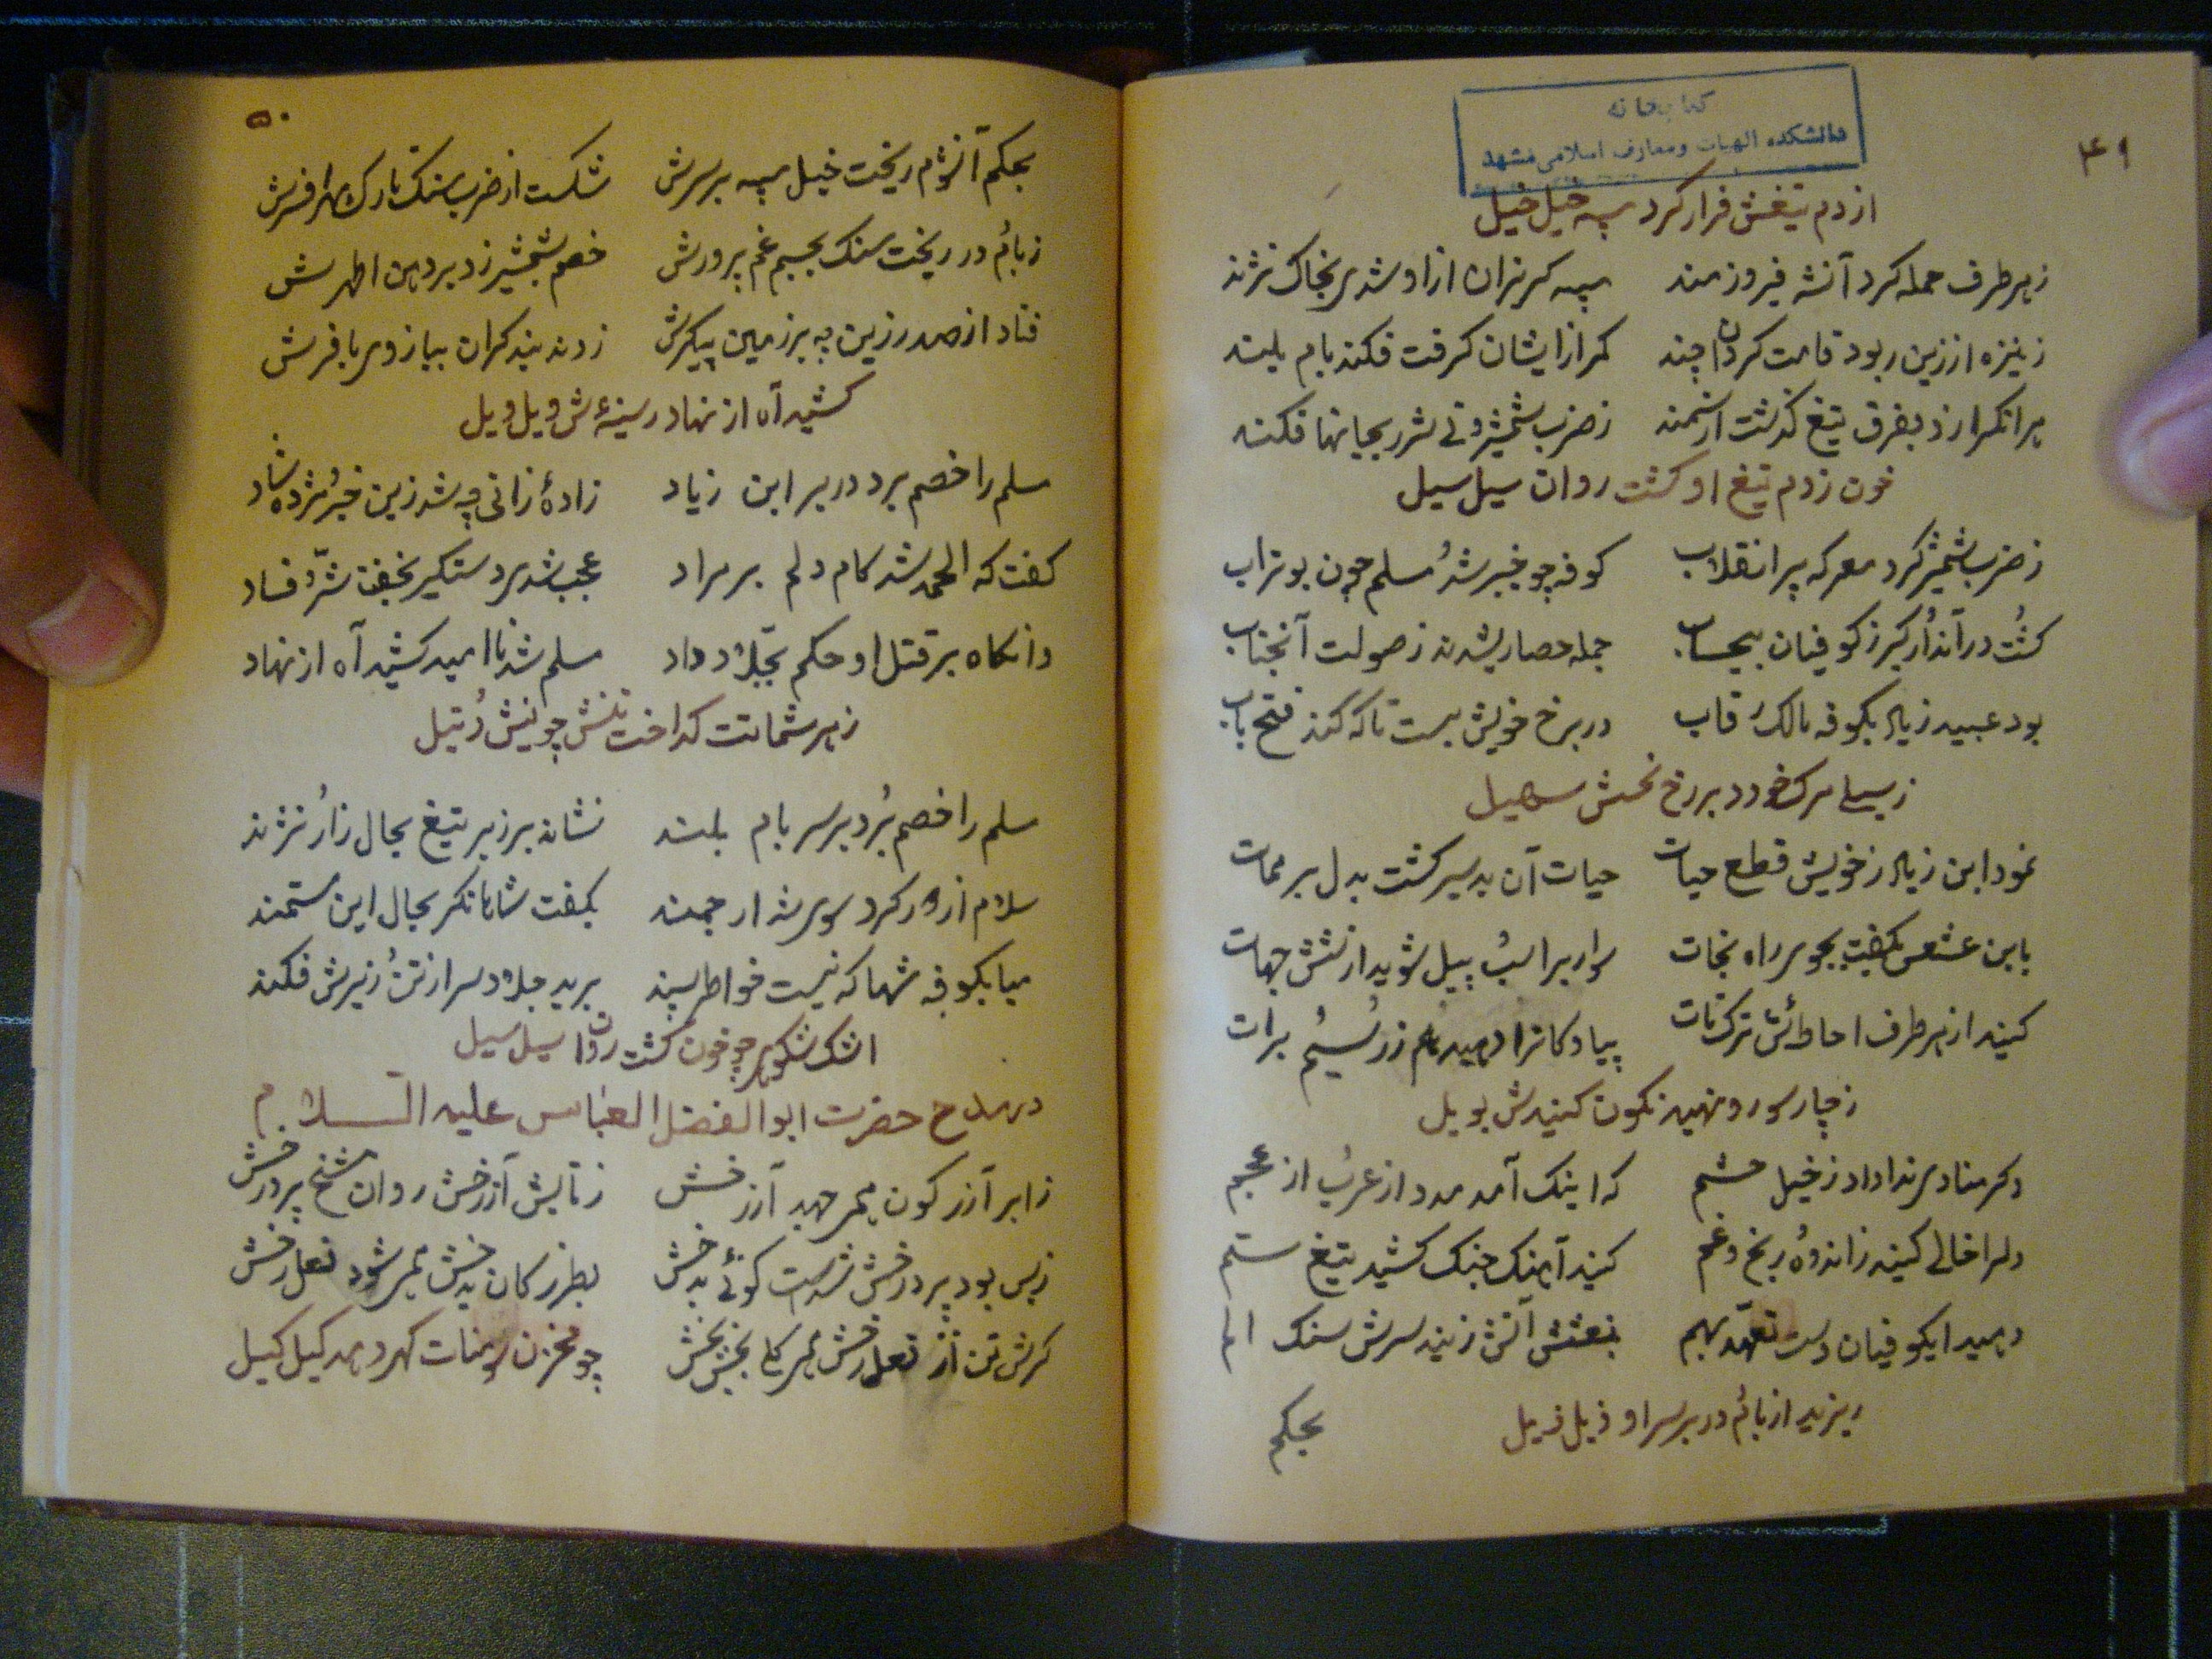 ۴۹
کتابخانه
دانشکده الهیات و معارف اسلامی مشهد
از دم تیغش فرار کرد سپه خیل خیل
زهر طرف حمله کرد آنشه فیروزمند سپه کریزان ازاو شدی بخاک نژند
زنیزه از زین ربود قامت کردان چند کمر از ایشان کرفت فکند بام بلند
هرانکرا زد بفرق تیغ گذشت از سمند زضرب شمشیر وی شرر بجانها فکند
خون زدم تیغ او کشت روان سیل سیل
زضرب شمشیر کرد معرکه پر انقلاب کوفه چو خیبر شد و مسلم چون بوتراب
کشت در آندار کبر زکوفیان بیحساب جمله حصاری شدند زصولت آنجناب
بود عبید زیاد بکوفه مالک رقاب در برخ خویش بست تا که کند فتح باب
زسیلی مرک خورد بررخ نحسش سهیل
نمود ابن زیاد زخویش قطع حیات حیات آن بد سیر کشت بدل بر ممات
بابن عشعس بکفت بجوی راه نجات سوار بر اسب پیل شوید از شش جهات
کنید از هر طرف احاطه‌اش ترک تات پیادکانرا دهید تمام زر و سیم برات
زچار سو رو نهید نکون کنیدش بویل
دکر منادی ندا داد زخیل حشم که اینک آمد مدد از عرب از عجم
دلرا خالی کنید زاندوه و رنج و غم کنید آهنک جنک کشید تیغ ستم
دهید ایکوفیان دست تعهد بهم بنعشش آتش زنید سرش سنک الم
ریزید از بام و در بر سر او ذیل ذیل
بحکم
۵۰
بحکم آنشوم ریخت خیل سپه بر سرش شکست از ضرب سنک تارک مهر افسرش
زبام و در ریخت سنک بجسم غم پرورش خصم بشمشیر زد بر دهن اطهرش
فتاد از صدر زین چه بر زمین پیکرش زدند بند کران ببازوی با فرش
کشید آه از نهاد رسینه‌ش ویل ویل
مسلم را خصم برد در بر ابن زیاد زادهٔ زانی چه شد زین خبر مژده شاد
کفت که الحمد شد کام دلم بر مراد عجب شدی دستکیر بخفت شر و فساد
وانکاه بر قتل او حکم بجلاد داد مسلم شد ناامید کشید آه از نهاد
زهر شماتت کداخت تنش چو نیش رتیل
مسلم را خصم برد بر سر بام بلند نشاند بر زیر تیغ بحال زار و نژند
سلام از دور کرد سوی شه ارجمند بکفت شاها نکر بحال این مستمند
میا بکوفه شها که نیست خواطر پسند برید جلاد سر از تن و زیرش فکند
اشک شکوهی چو خون کشت روان سیل سیل
در مدح حضرت ابوالفضل العباس علیه السلام
زابر آذر کون مهر جهد آذرخش زتابش آذرخش روان شخ پر درخش
زبس بود پر درخش شدست کوئی بدخش بطرز کان بدخش مهر شود نعل رخش
کرش تن از نعل رخش مهر کله بخش بخش چو مخزن مومنات کهر دهد کیل کیل